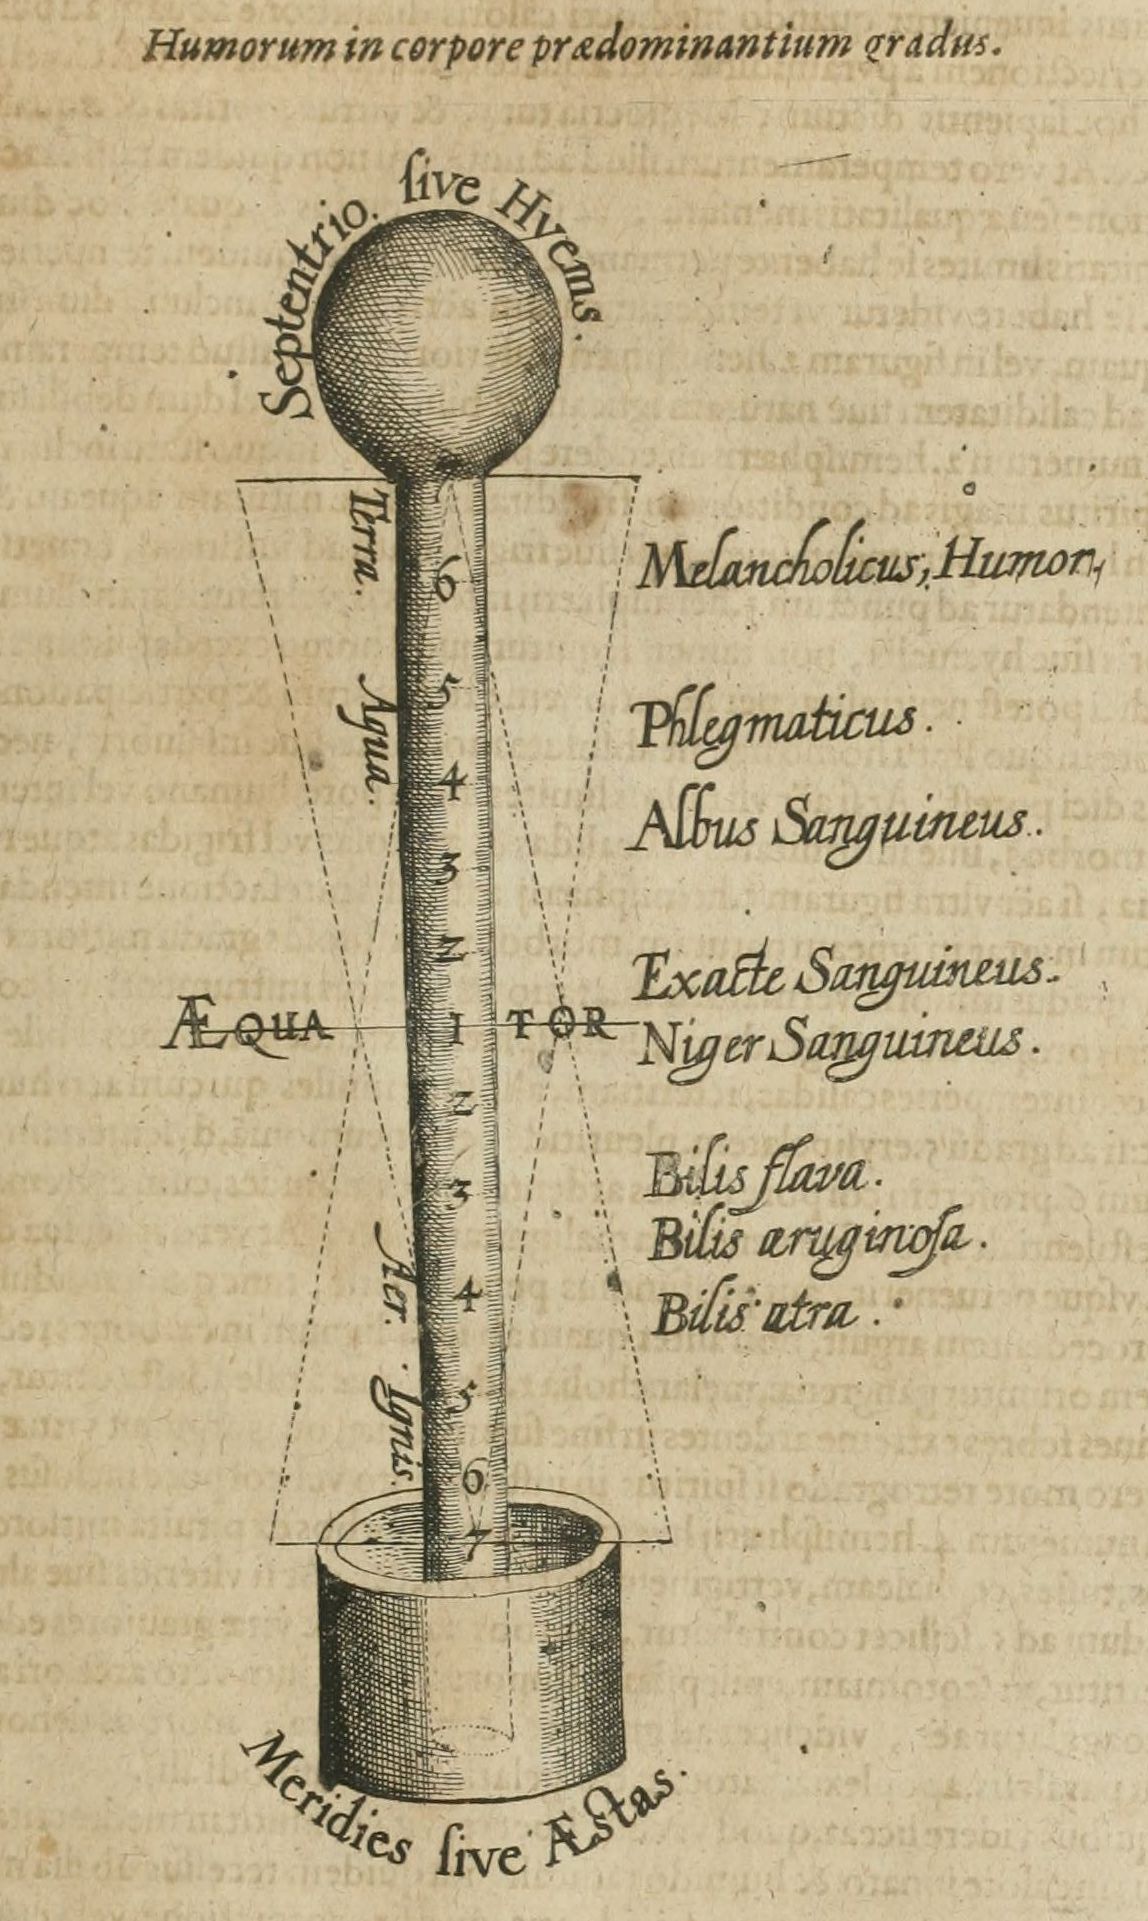 Humorum in corpore prædominantium gradus.
Septentrio. ſive Hyems.
Terra.
6
Melancholicus, Humor,
5
Aqua.
Phlegmaticus.
4
Albus Sanguineus.
3
2
Exacte Sanguineus.
ÆQUA 1 TOR
Niger Sanguineus.
2
3
Bilis flava.
Bilis æruginoſa.
Aer.
4
Bilis atra.
5
Ignis.
6
7
Meridies ſive Æstas.